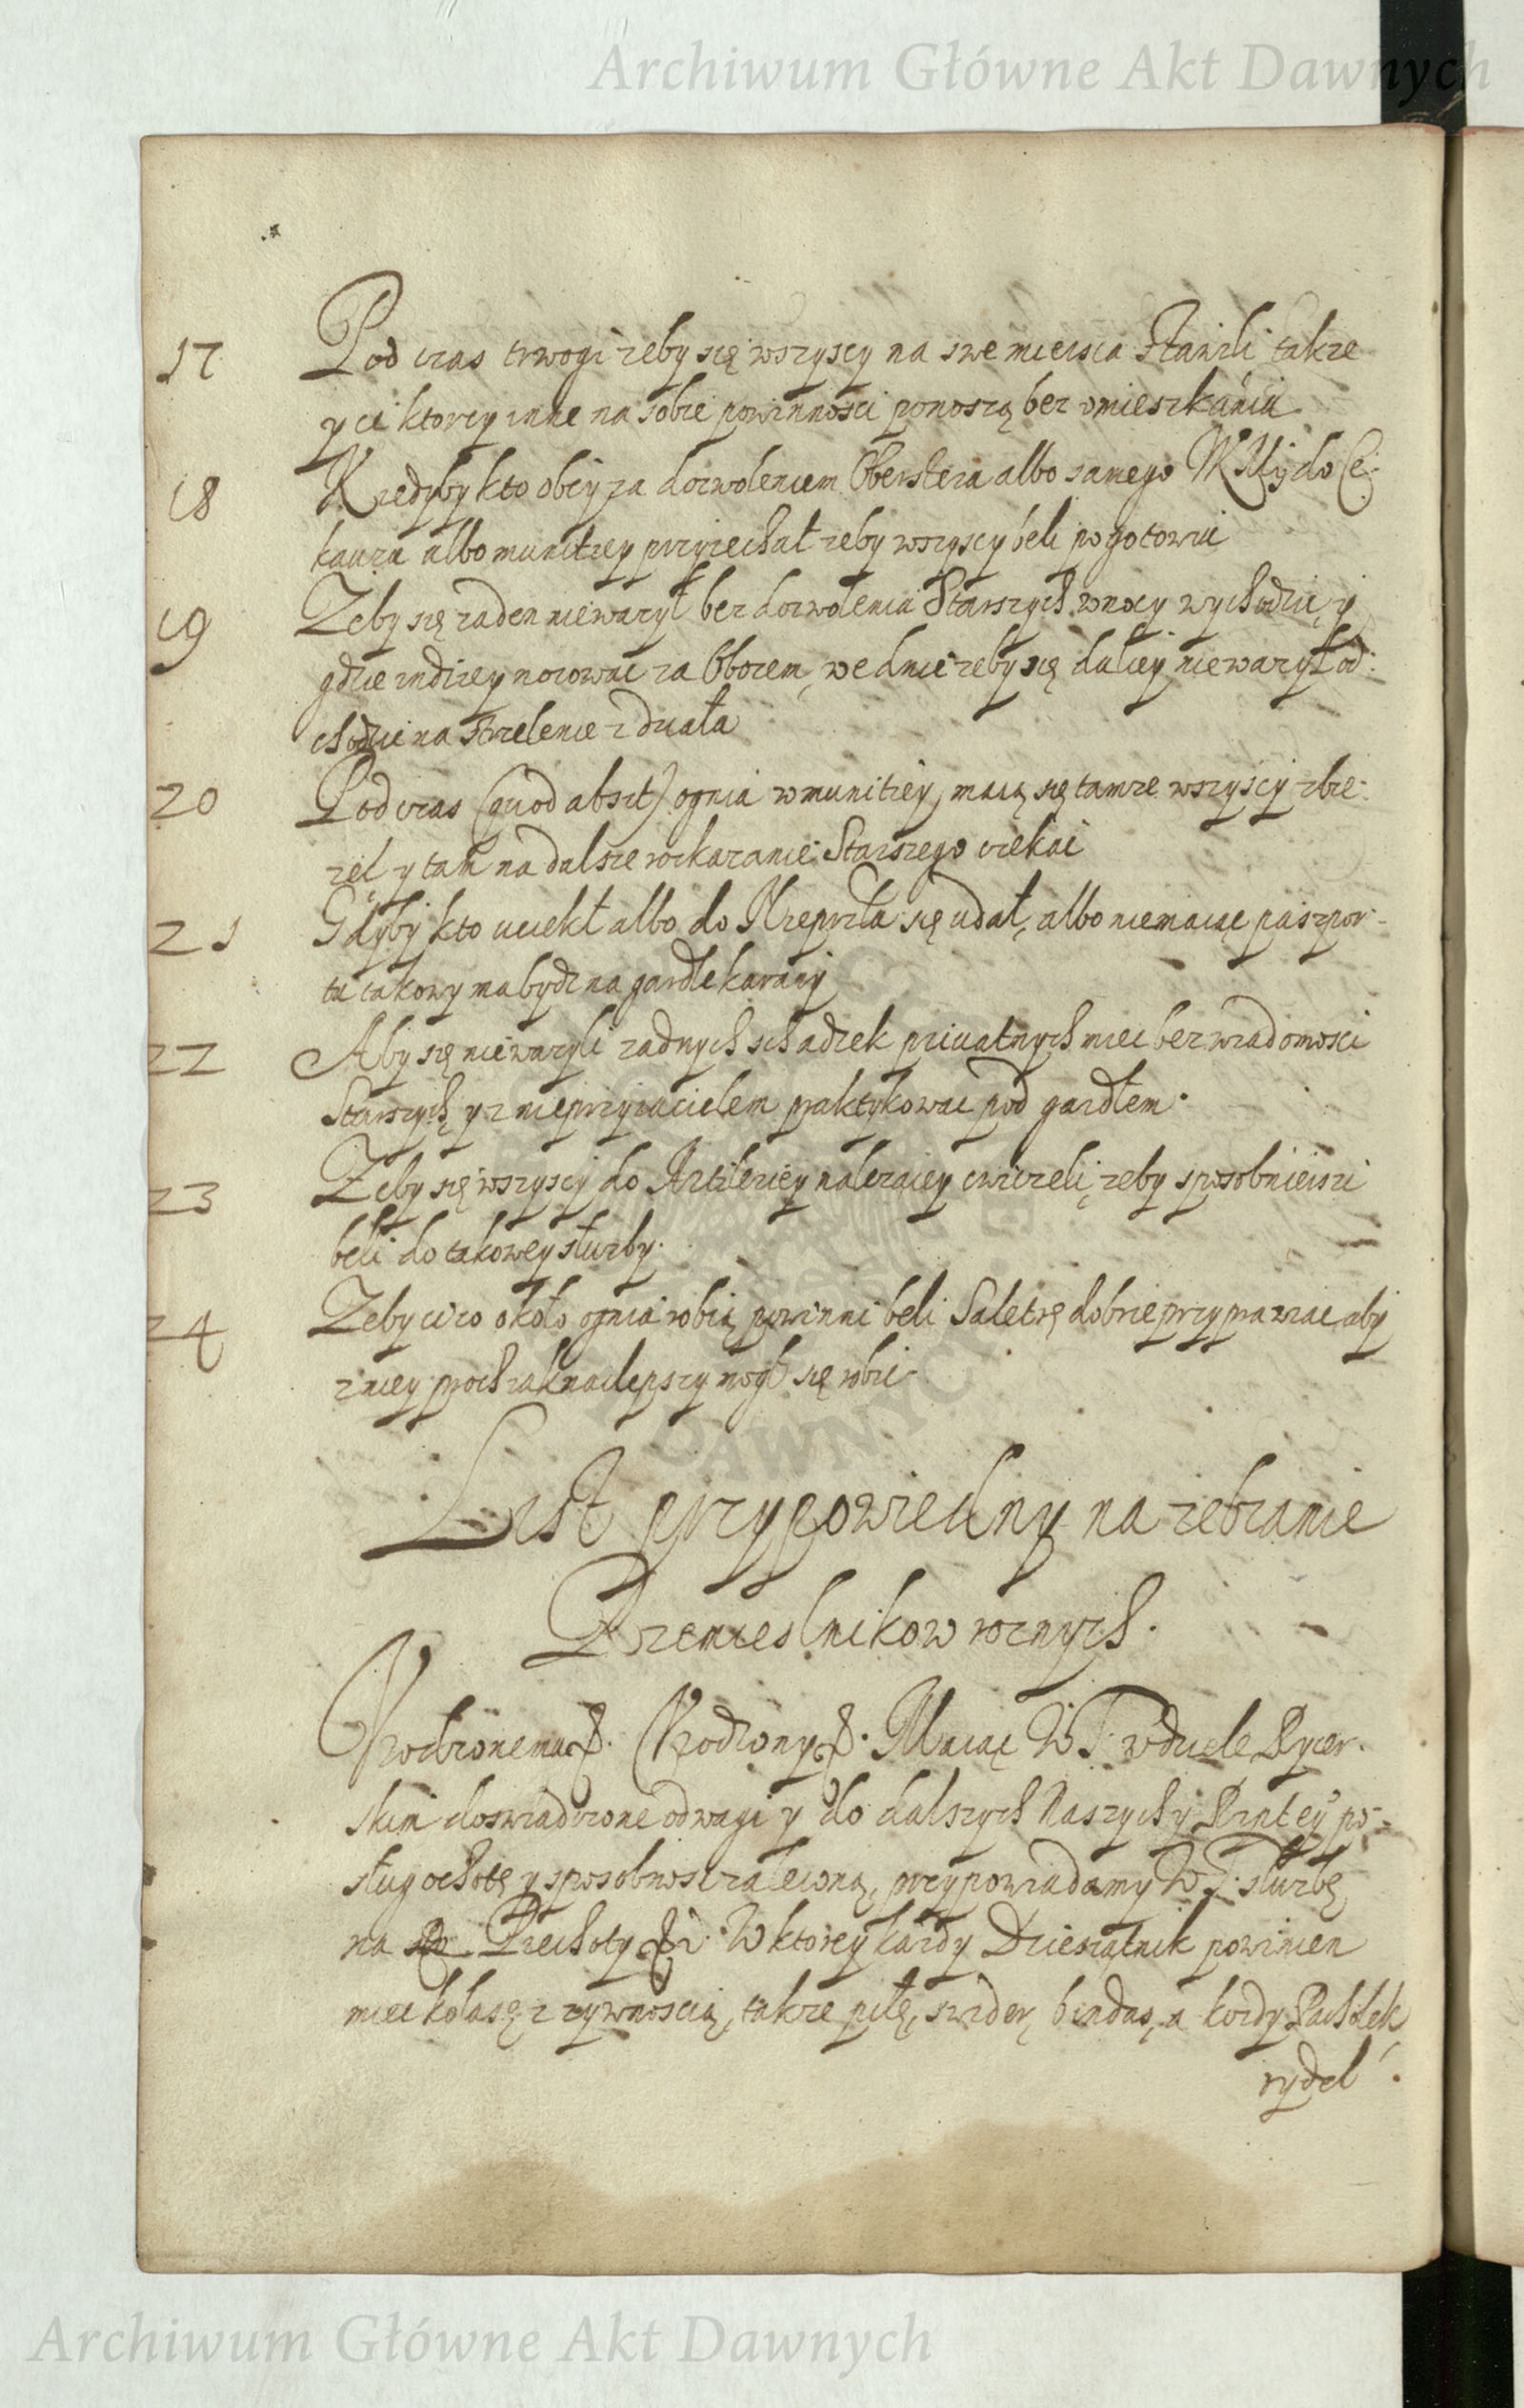 Archiwum Główne Akt Dawnych
17 Pod czas trwogi zeby się wszyscy na swe mieisca stawili takze
y ci ktorzy inne na sobie powinnosci ponoszą bez omieszkania
18 Kiedyby kto obcy za dozwoleniem Oberstera albo samego do Ce:
kauza albo munitiey przyiechał zeby wszyscy beli pogotowiu
19 Zeby się zaden niewazył bez dozwolenia Starszych wnocy wychodzic y
gdzie indziey nocowac za Obozem, we dnie zeby się daliey niewazył od:
chodzic na strzelenie z działa
20 Podczas (quod absit) ognia w munitiey, maią się tamze wszyscy zbie:
zec y tam na dalsze roskazanie Starszego czekac
21 Gdyby kto uciekł albo do Nieprzla się udał, albo niemaiąc paszpor:
tu takowy ma bydz na gardle karany
22 Aby się niewazyli zadnych schadzek priuatnych miec bez wiadomosci
Starszych y z nieprzyiacielem praktykowac pod gardłem.
23 Zeby się wszyscy do Artileriey nalezącey cwiczeli, zeby sposobnieiszi
beli do takowey sluzby.
24 Zeby ci co około ognia robią powinni beli Saletrę dobrze przyprawiac aby
z niey proch iak nailepszy mogł się robic
List przypowiedny na zebranie
Rzemieslnikow roznych.
Maiąc W T. w dziele Rycer.
skim doswiadczone odwagi y do dalszych Naszych y Rzptey po:
sług ochotę y sposobnosc zaleconą, przypowiadamy W T. służbę
na Piechoty W ktorey kazdy Dziesiątnik powinien
miec kolasę z zywnoscią, takze piłę, swider, bindas, a kozdy Pachołek
rydel.
DAWNYCH
Archiwum Główne Akt Dawnych